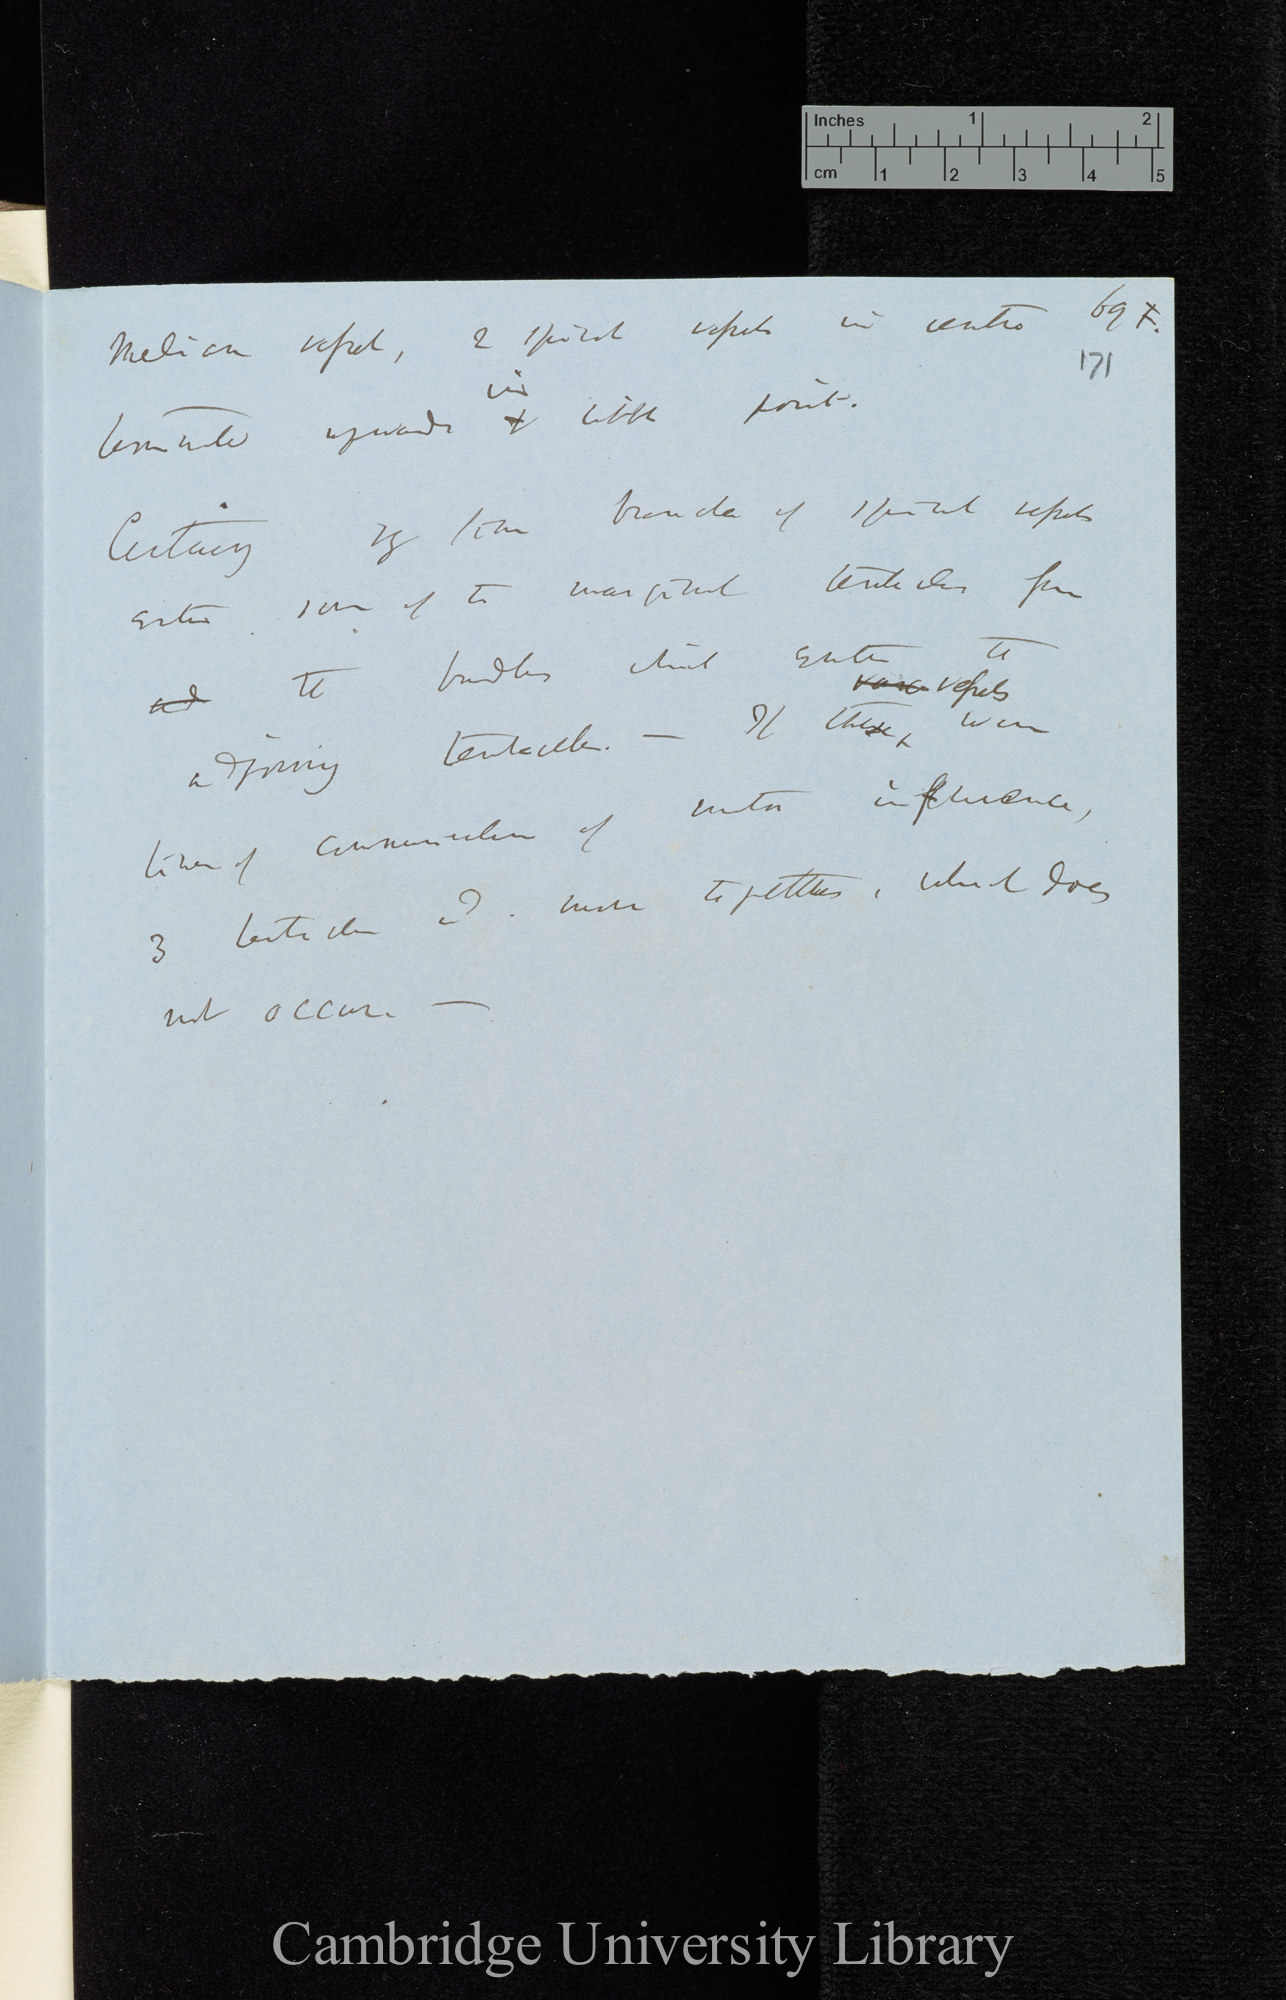 Inches 1 2
cm 1 2 3 4 5
69 F.
171
Median vessel, 2 spiral vessels in centre
terminates upwards in little point.
Certainly branches of spiral vessels
enter some of the marginal tentacles from
and the bundles which enter the
adjoining tentacles. — If these vessels were
lines of communication of motor influence,
3 tentacles wd. move together, which does
not occur. —
Cambridge University Library